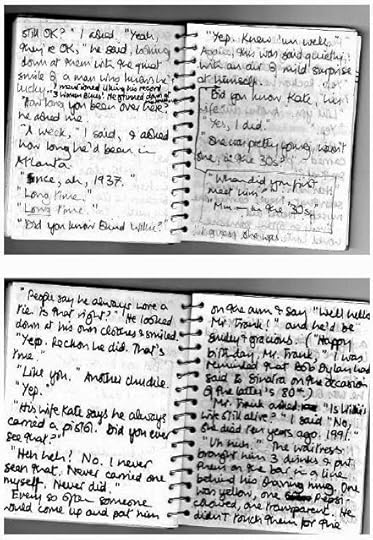 still OK?" I asked "Yeah,
they're OK," he said, looking
down at them with the quiet
smile of a man who knows he's
lucky. I mentioned liking his record
"3 Women Blues". He grinned down at
"How long you been over here?"
he asked me.
"A week," I said, & asked
how long he'd been in
Atlanta.
"Since, ah, 1937."
"Long time."
"Long time."
"Did you know Blind Willie?"
"Yep. Knew 'im well."
Again, this was said quietly,
with an air of mild surprise
at himself.
"Did you know Kate, his
"Yes, I did."
"She was pretty young, wasn't
she, in the '30s?"
"When did you first
meet him?"
"Mm — in the '30s."
"People say he always wore a
tie. Is that right?" He looked
down at his own clothes & smiled.
"Yep. Reckon he did. That's
true."
"Like you." Another chuckle.
"Yep."
"His wife Kate says he always
carried a pistol. Did you ever
see that?"
"Heh heh! No. I never
seen that. Never carried one
myself. Never did."
Every so often someone
would come up and pat him
on the arm & say "Well hello
Mr. Frank!" and he'd be
smiley & gracious. ("Happy
birthday, Mr. Frank," I was
reminded that Bob Dylan had
said to Sinatra on the occasion
of the latter's 80th.)
Mr. Frank asked "Is Willie's
wife still alive?" I said "No,
she died ten years ago. 1991."
"Uh huh." The waitress
brought him 3 drinks & put
them on the bar in a line
behind his
was yellow, one
coloured, one transparent. He
didn't touch them for the